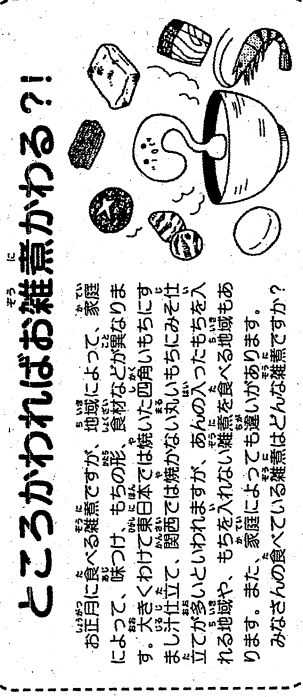 ところかわればお雑煮かわる？！
お正月に食べる雑煮ですが、地域によって、家庭
によって、味つけ、もちの形、食材などが異なりま
す。大きくわけて東日本では焼いた四角いもちにす
まし汁仕立て、関西では焼かない丸いもちにみそ仕
立てが多いといわれますが、あんの入ったもちを入
れる地域や、もちを入れない雑煮を食べる地域もあ
ります。また、家庭によっても違いがあります。
みなさんの食べている雑煮はどんな雑煮ですか？